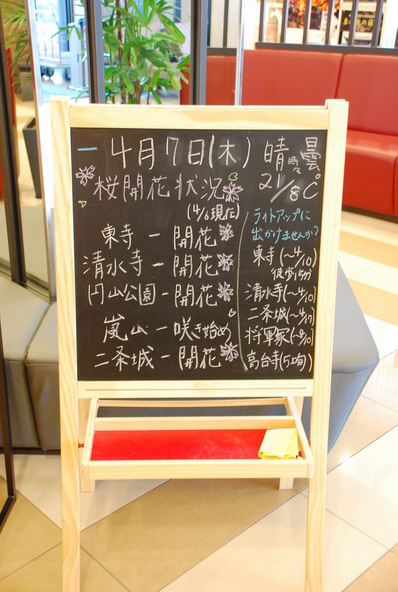 4月17日(木) 晴時々曇
桜開花状況 21/8℃
(4/6現在)
東寺 - 開花
清水寺 - 開花
円山公園 - 開花
嵐山 - 咲き始め
二条城 - 開花
ライトアップに
出かけませんか?
東寺(~4/10)
徒歩15分
清水寺(~4/10)
二条城(~4/17)
将軍塚(~4/10)
高台寺(5旬)